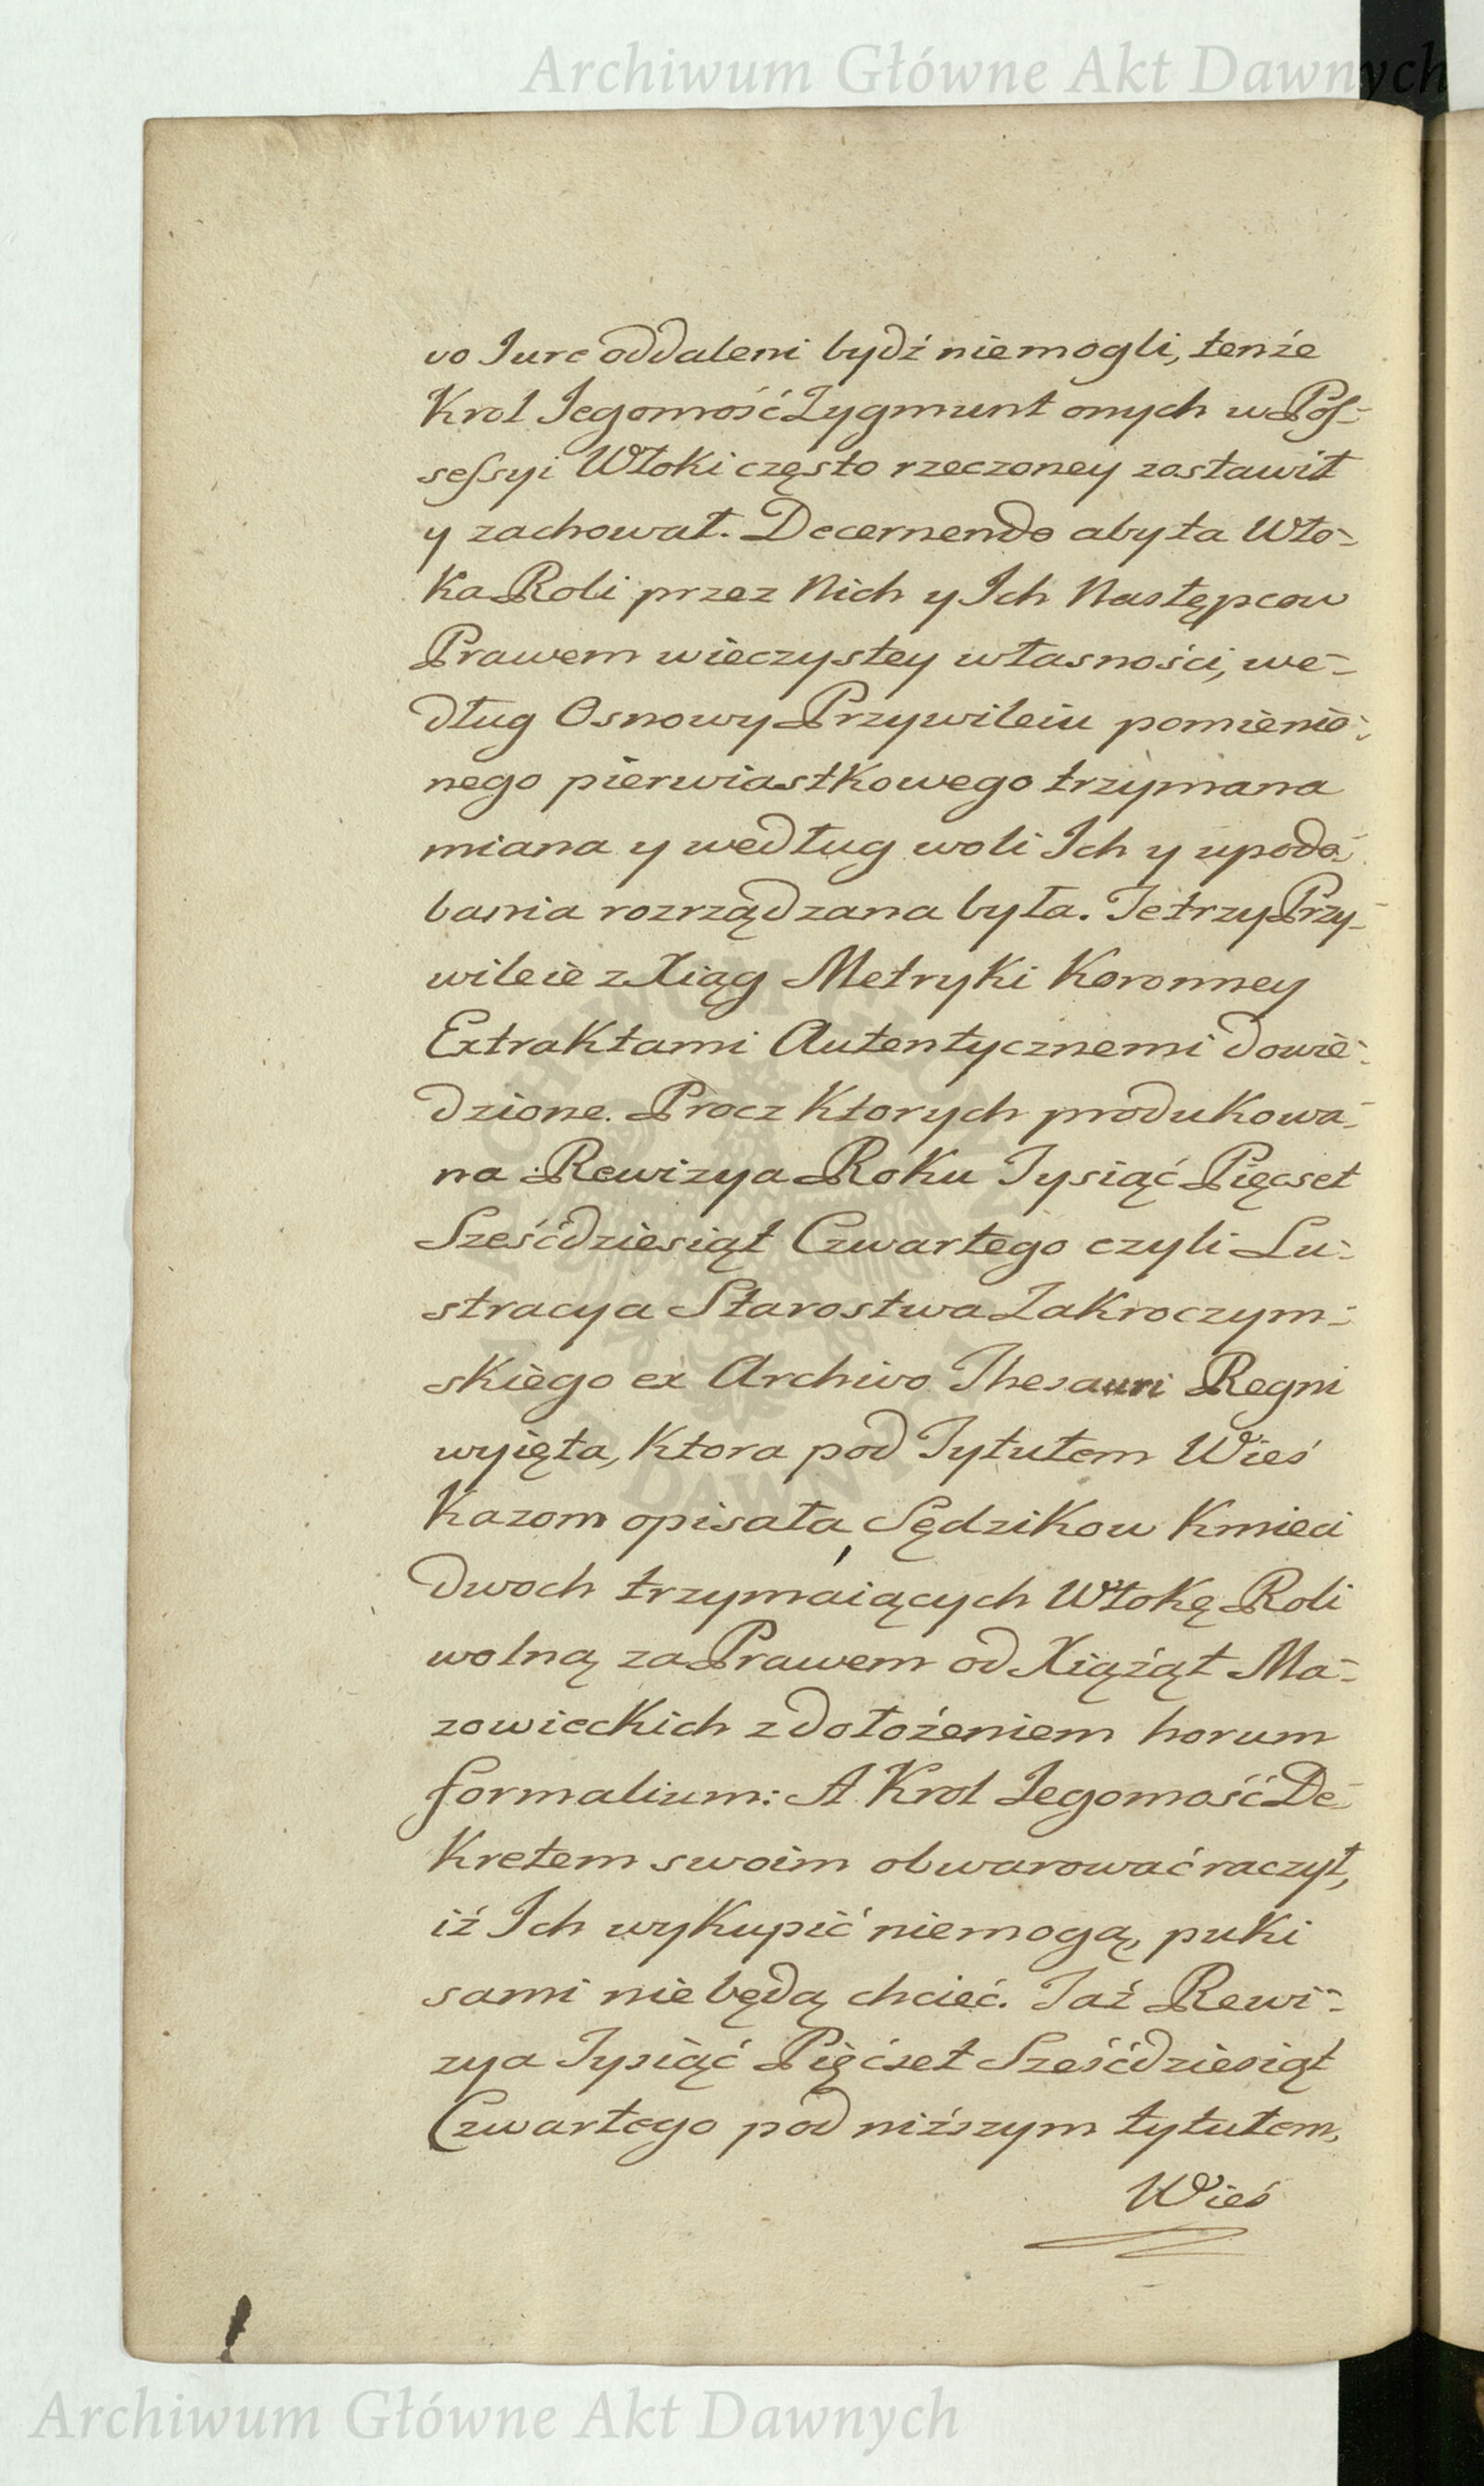 Archiwum Główne Akt Dawnych
vo Jure oddaleni bydź niemogli, tenże
Krol Jegomość Zygmunt onych w Pos-
sessyi Włoki często rzeczoney zostawił
y zachował. Decernendo aby ta Wło-
ka Roli przez Nich y Ich Następcow
Prawem wieczystey własności, we-
dług Osnowy Przywileiu pomienio-
nego pierwiastkowego trzymana
miana y według woli Ich y upodo-
bania rozrządzana była. Te trzy Przy-
wileie z Xiąg Metryki Koronney
Extraktami Autentycznemi dowie-
dzione. Procz Ktorych produkowa-
na Rewizya Roku Tysiąć Pięcset
Sześćdziesiąt Czwartego czyli Lu-
stracya Starostwa Zakroczym-
skiego ex Archivo Thesauri Regni
wyięta, Ktora pod Tytułem Wieś
Kazom opisała, Sędzikow Kmieci
dwoch trzymaiących Włokę Roli
wolną za Prawem od Xiążąt Ma-
zowieckich z dołożeniem horum
formalium: A Krol Jegomość De-
kretem swoim obwarować raczył,
iż Ich wykupić niemogą, puki
sami nie będą chcieć. Taż Rewi-
zya Tysiąć Pięćset Sześćdziesiąt
Czwartego pod niższym tytułem,
Wieś
ARCHIWUM GŁÓWNE AKT DAWNYCH
Archiwum Główne Akt Dawnych